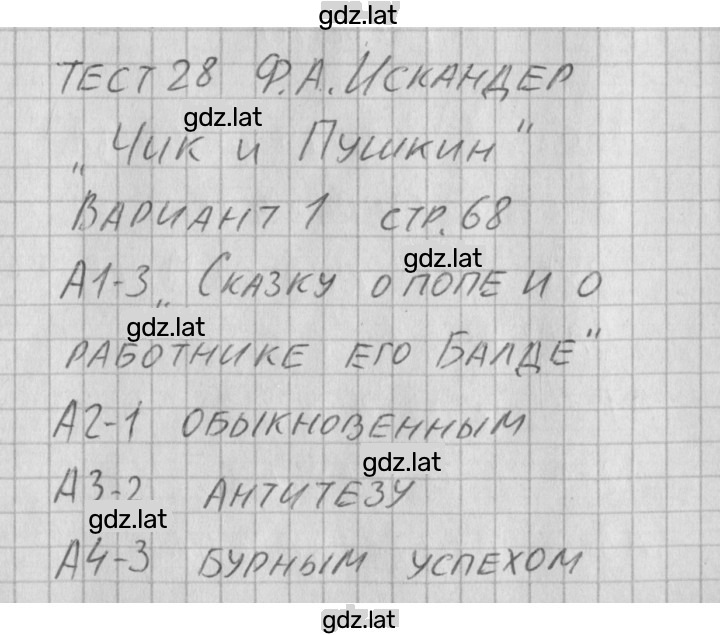 gdz.lat
ТЕСТ 28 Ф.А. ИСКАНДЕР
gdz.lat
„ЧИК И ПУШКИН"
ВАРИАНТ 1 СТР. 68
gdz.lat
А1-3 „СКАЗКУ О ПОПЕ И О
gdz.lat
РАБОТНИКЕ ЕГО БАЛДЕ"
А2-1 ОБЫКНОВЕННЫМ
gdz.lat
А3-2 АНТИТЕЗУ
gdz.lat
А4-3 БУРНЫМ УСПЕХОМ
gdz.lat